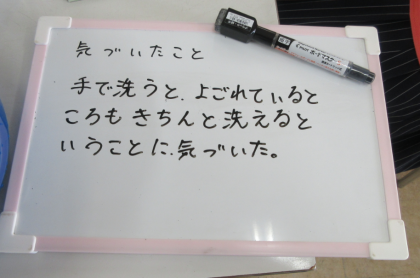 気づいたこと
手で洗うと、よごれていると
ころもきちんと洗えると
いうことに、気づいた。